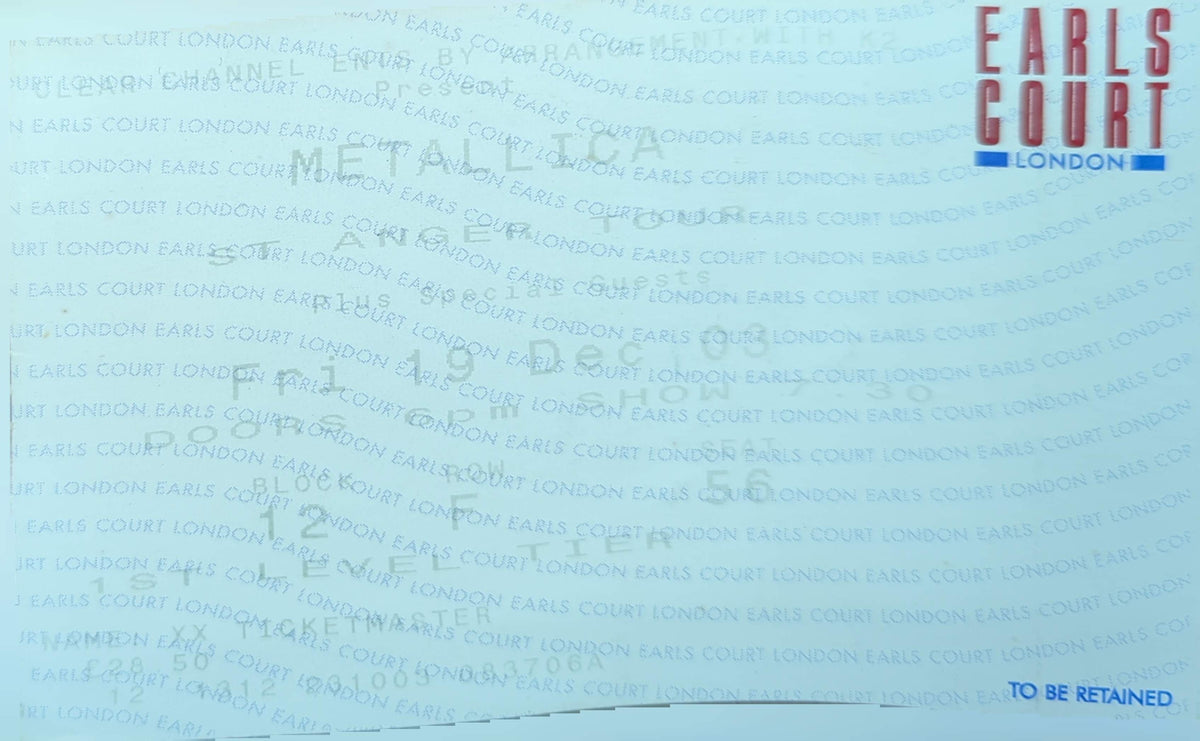 CLEAR CHANNEL ENTS BY ARRANGEMENT WITH K2
Present
METALLICA
ST ANGER TOUR
plus Special Guests
Fri 19 Dec 03
DOORS 6pm SHOW 7.30
BLOCK ROW SEAT
12 F 56
1ST LEVEL TIER
NAME: XX TICKETMASTER
£28 50
EARLS
COURT
LONDON
TO BE RETAINED